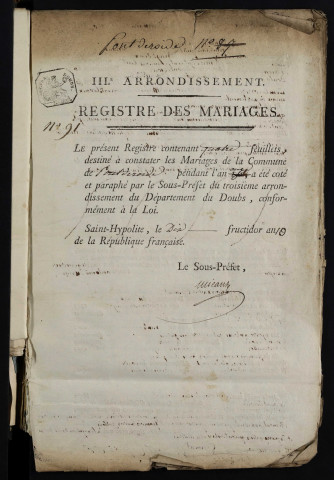 Pontderoide n.º
III.e ARRONDISSEMENT.
REGISTRE DES MARIAGES.
n.º 91.
Le présent Registre contenant quatre feuillets,
destiné à constater les Mariages de la Commune
de Pontderoide pendant l'an a été coté
et paraphé par le Sous-Préfet du troisième arron-
dissement du Département du Doubs, confor-
mément à la Loi.
Saint-Hypolite, le Dix fructidor an
de la République française.
Le Sous-Préfet,